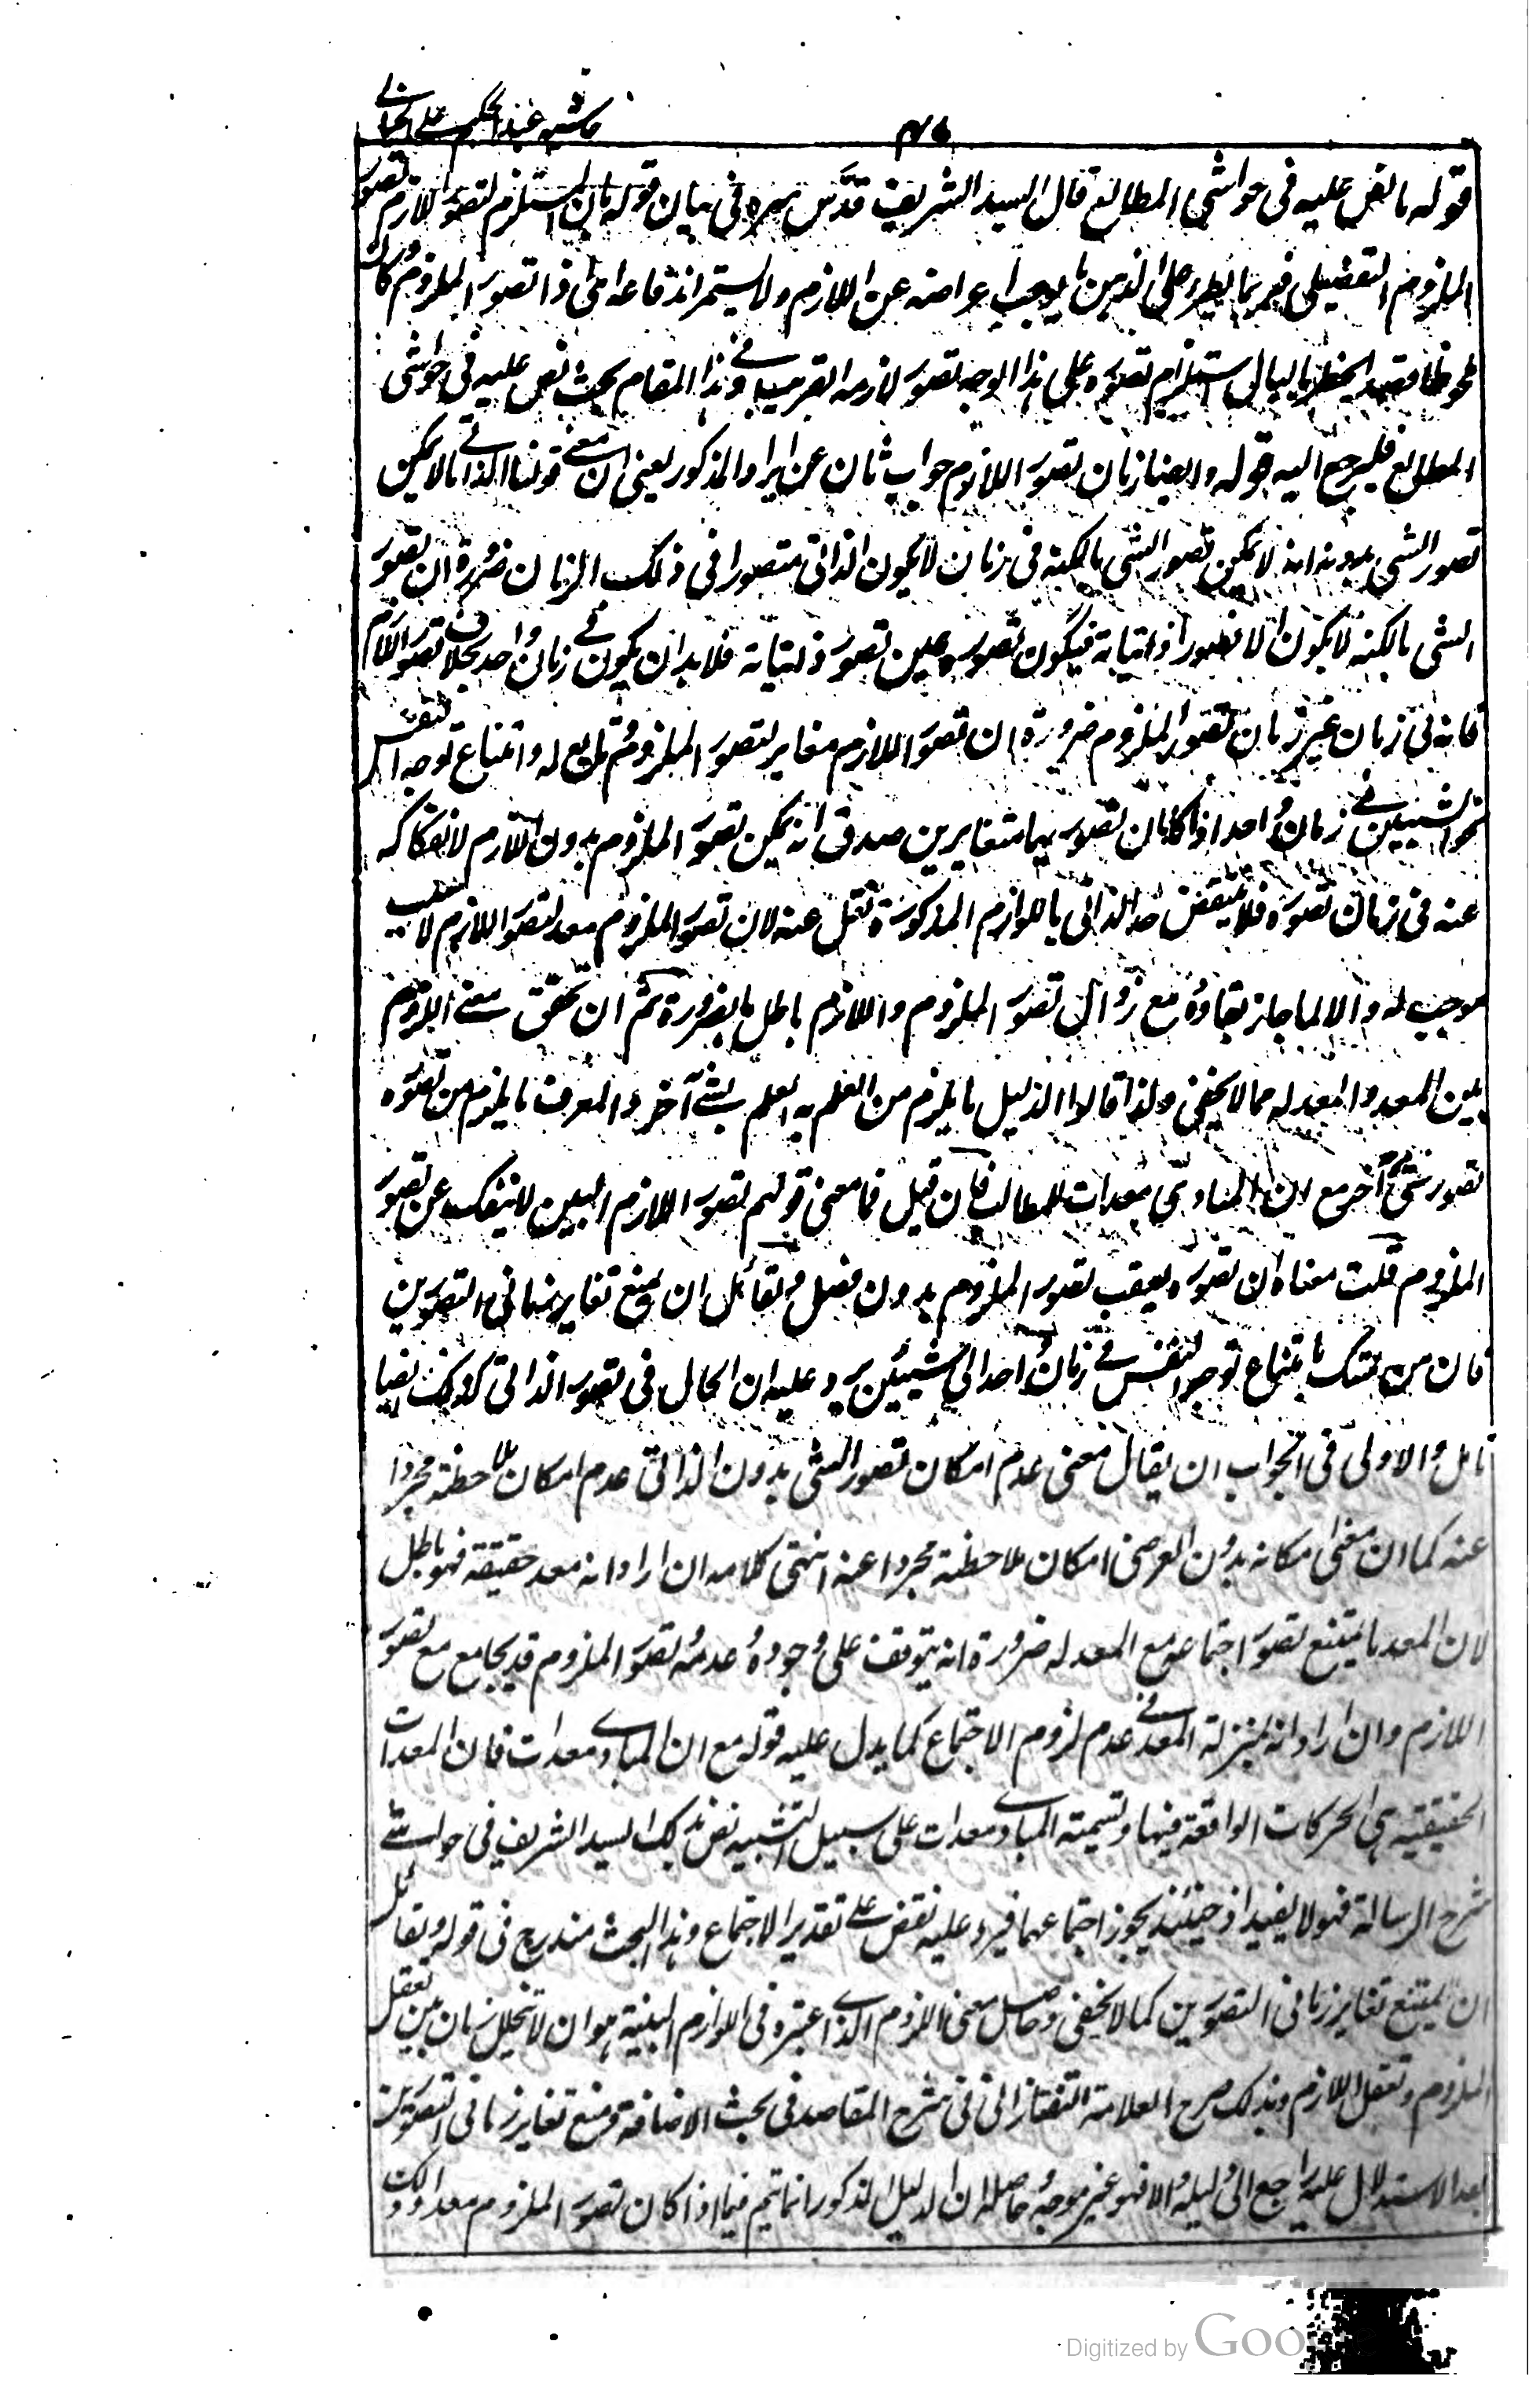 حاشيه عبد الحكيم على الخيالى
قوله ما نص عليه فى حواشى المطالع قال السيد الشريف قدس سره فى بيان قوله بان المستلزم لتصور اللازم تصور
الملزوم التفصيلى فربما يطرء على الذهن ما يوجب اعراضه عن اللازم ولا يستمر اندفاعه اى اذا تصور الملزوم وكان
ملحوظا قصدا مخطرا بالبال استلزم تصوره على هذا الوجه تصور لازمه القريب وفى هذا المقام بحث نص عليه فى حواشى
المطالع فليرجع اليه قوله وايضا زمان تصور اللازم جواب ثان عن ايراد المذكور يعنى ان معنى قولنا الذاتى ما لا يمكن
تصور الشى بدونه انه لا يمكن تصور الشى بالكنه فى زمان لا يكون الذاتى متصورا فى ذلك الزمان ضرورة ان تصور
الشى بالكنه لا يكون الا بتصور ذاتياته فيكون تصوره عين تصور ذاتياته فلا بد ان يكون فى زمان واحد بخلاف تصور اللازم
فانه فى زمان غير زمان تصور الملزوم ضرورة ان تصور اللازم مغاير لتصور الملزوم تابع له وامتناع توجه النفس
نحو الشيئين فى زمان واحد اذا كان تصورهما متغايرين صدق انه يمكن تصور الملزوم بدون اللازم لانفكاكه
عنه فى زمان تصوره فلا ينتقض حد الذاتى باللوازم المذكورة نقل عنه لان تصور الملزوم معد لتصور اللازم لا سبب
موجب له والا لما جاز بقاؤه مع زوال تصور الملزوم واللازم باطل بالضرورة ثم ان تحقق معنى اللزوم
بين المعد والمعد له مما لا يخفى ولذا قالوا الدليل ما يلزم من العلم به العلم بشئ آخر والمعرف ما يلزم من تصوره
تصور شئ آخر مع ان المبادى معدات للمطالب فان قيل فما معنى قولهم تصور اللازم البين لا ينفك عن تصور
الملزوم قلت معناه ان تصوره يعقب تصور الملزوم بدون فصل ولقائل ان يمنع تغاير زمانى التصورين
فان من تمسك بامتناع توجه النفس فى زمان واحد الى شيئين يرد عليه ان الحال فى تصور الذاتى كذلك ايضا
تامل والاولى فى الجواب ان يقال معنى عدم امكان تصور الشى بدون الذاتى عدم امكان ملاحظته مجردا
عنه كما ان معنى امكانه بدون العرضى امكان ملاحظته مجردا عنه انتهى كلامه ان اراد انه معد حقيقة فهو باطل
لان المعد ما يمتنع تصور اجتماعه مع المعد له ضرورة انه يتوقف على وجوده وعدمه وتصور الملزوم قد يجامع مع تصور
اللازم وان اراد انه بمنزلة المعد فى عدم لزوم الاجتماع كما يدل عليه قوله مع ان المبادى معدات فان المعدات
الحقيقية هى الحركات الواقعة فيها وتسمية المبادى معدات على سبيل التشبيه نص بذلك السيد الشريف فى حواشى
شرح الرسالة فهو لا يفيد اذ حينئذ يجوز اجتماعهما فيرد عليه نقض على تقدير الاجتماع وهذا البحث مندرج فى قوله ولقائل
ان يمنع تغاير زمانى التصورين كما لا يخفى وحاصل معنى اللزوم الذى اعتبره فى اللوازم البينة هو ان لا تخلل زمان بين تعقل
الملزوم وتعقل اللازم وبذلك صرح العلامة التفتازانى فى شرح المقاصد فى بحث الاضافة ومنع تغاير زمانى التصورين
بعد الاستدلال عليه راجع الى دليله والا فهو غير موجه حاصله ان الدليل المذكور انما يتم فيما اذا كان تصور الملزوم معدا وذلك
Digitized by Goo